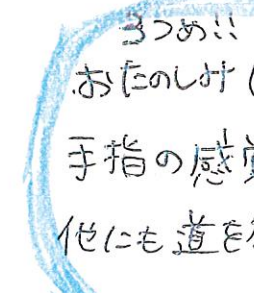 3つめ!!
おたのしみ(
手指の感覚
他にも道を